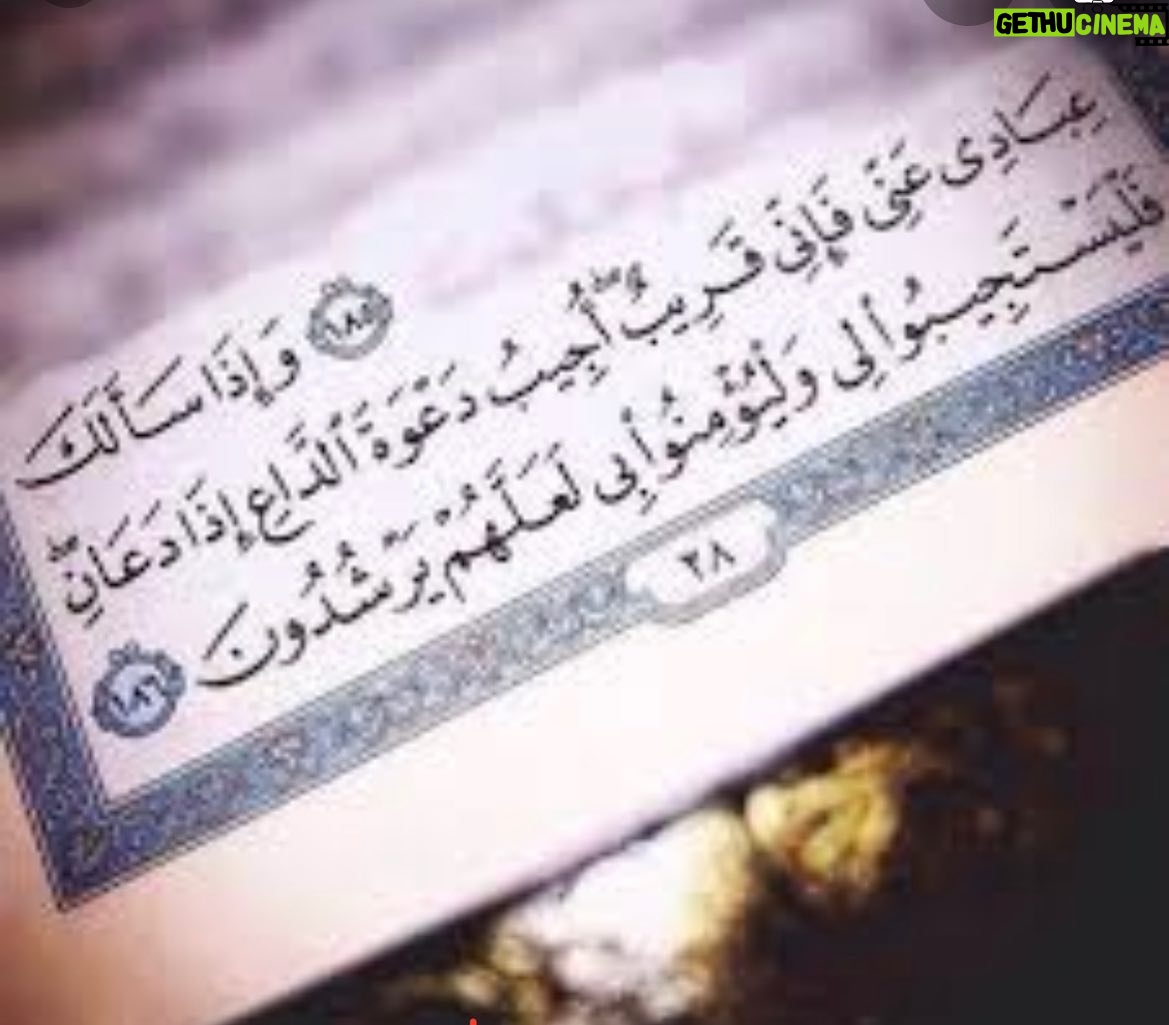 GETHUCINEMA
١٨٥ وَإِذَا سَأَلَكَ
عِبَادِى عَنِّى فَإِنِّى قَرِيبٌ ۖ أُجِيبُ دَعْوَةَ ٱلدَّاعِ إِذَا دَعَانِ ۖ
فَلْيَسْتَجِيبُوا۟ لِى وَلْيُؤْمِنُوا۟ بِى لَعَلَّهُمْ يَرْشُدُونَ ١٨٦
٢٨